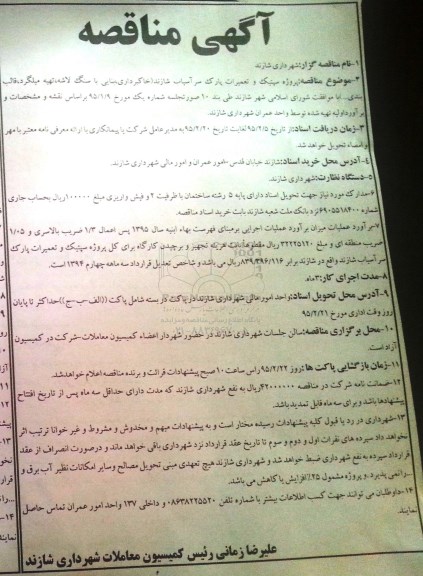 آگهی مناقصه
۱-نام مناقصه گزار:شهرداری شازند
۲-موضوع مناقصه:پروژه سپتیک و تعمیرات پارک سرآسیاب شازند(خاکبرداری،بنایی با سنگ لاشه،تهیه میلگرد،قالب
بندی...)با موافقت شورای اسلامی شهر شازند طی بند ۲۰ صورتجلسه شماره یک مورخ ۹۵/۱/۹ براساس نقشه و مشخصات و
برآورداولیه تهیه شده توسط واحد عمران شهرداری شازند.
۳-زمان دریافت اسناد:از تاریخ ۹۵/۲/۵ لغایت تاریخ ۹۵/۲/۲۰ به مدیرعامل شرکت یا پیمانکاری با ارائه معرفی نامه معتبر با مهر
وامضاء تحویل خواهد شد.
۴-آدرس محل خرید اسناد:شازند خیابان قدس -امور عمران و امور مالی شهرداری شازند.
۵-دستگاه نظارت:شهرداری شازند.
۶-مدارک مورد نیاز جهت تحویل اسناد دارای پایه ۵ رشته ساختمان با ظرفیت ۲ و فیش واریزی مبلغ ۱۰۰۰۰۰ریال بحساب جاری
شماره ۶۹۰۵۵۱۸۴۰۰ نزد بانک ملت شعبه شازند بابت خرید اسناد مناقصه.
۷-برآورد عملیات میزان برآورد عملیات اجرایی برمبنای فهرست بهاء ابنیه سال ۱۳۹۵ پس اعمال ۱/۳ ضریب بالاسری و ۱/۰۵
ضریب منطقه ای و مبلغ ۳۲۲۲۵۱۲۰ ریال مقطوعا بابت هزینه تجهیز و برچیدن کارگاه برای کل پروژه سپتیک و تعمیرات پارک
سرآسیاب شازند واقع در شازند برابر ۸۳۹٬۳۹۶٬۱۱۶ریال می باشد و شاخص تعدیل قرارداد سه ماهه چهارم ۱۳۹۴ است.
۸-مدت اجرای کار:۳ماه
۹-آدرس محل تحویل اسناد:واحد امورمالی شهرداری شازند در پاکت دربسته شامل پاکت ((الف-ب-ج))حداکثر تا پایان
روز وقت اداری مورخ ۹۵/۲/۲۱
۱۰-محل برگزاری مناقصه:سالن جلسات شهرداری شازند در حضور شهردار اعضاء کمیسیون معاملات-شرکت در کمیسیون
آزاد است.
۱۱-زمان بازگشایی پاکت ها:روز ۹۵/۲/۲۲ راس ساعت ۱۰ صبح پیشنهادات قرائت و برنده مناقصه اعلام خواهدشد.
۱۲-ضمانت نامه شرکت در مناقصه ۴۲۰۰۰۰۰۰ریال به نفع شهرداری شازند که مدت دارای حداقل سه ماه پس از تاریخ افتتاح
پیشنهادها باشد و برای سه ماه قابل تمدید باشد.
۱۳-شهرداری در رد یا قبول کلیه پیشنهادات رسیده مختار است و به پیشنهادات مبهم و مخدوش و مشروط و غیر خوانا ترتیب اثر
نخواهد داد سپرده های نفرات اول و دوم و سوم تا تاریخ عقد قرارداد نزد شهرداری باقی خواهد ماند و درصورت انصراف از عقد
قرارداد سپرده به نفع شهرداری ضبط خواهد شد و شهرداری شازند هیچ تعهدی مبنی تحویل مصالح وسایر امکانات نظیر آب برق و
...رانمی پذیرد..و پروژه مشمول ۲۵٪افزایش یا کاهش می باشد.
۱۴-داوطلبان می توانند جهت کسب اطلاعات بیشتر با شماره تلفن ۰۸۶۳۸۲۲۵۵۲۰ و داخلی ۱۳۷ واحد امور عمران تماس حاصل
نمایند.
علیرضا زمانی رئیس کمیسیون معاملات شهرداری شازند